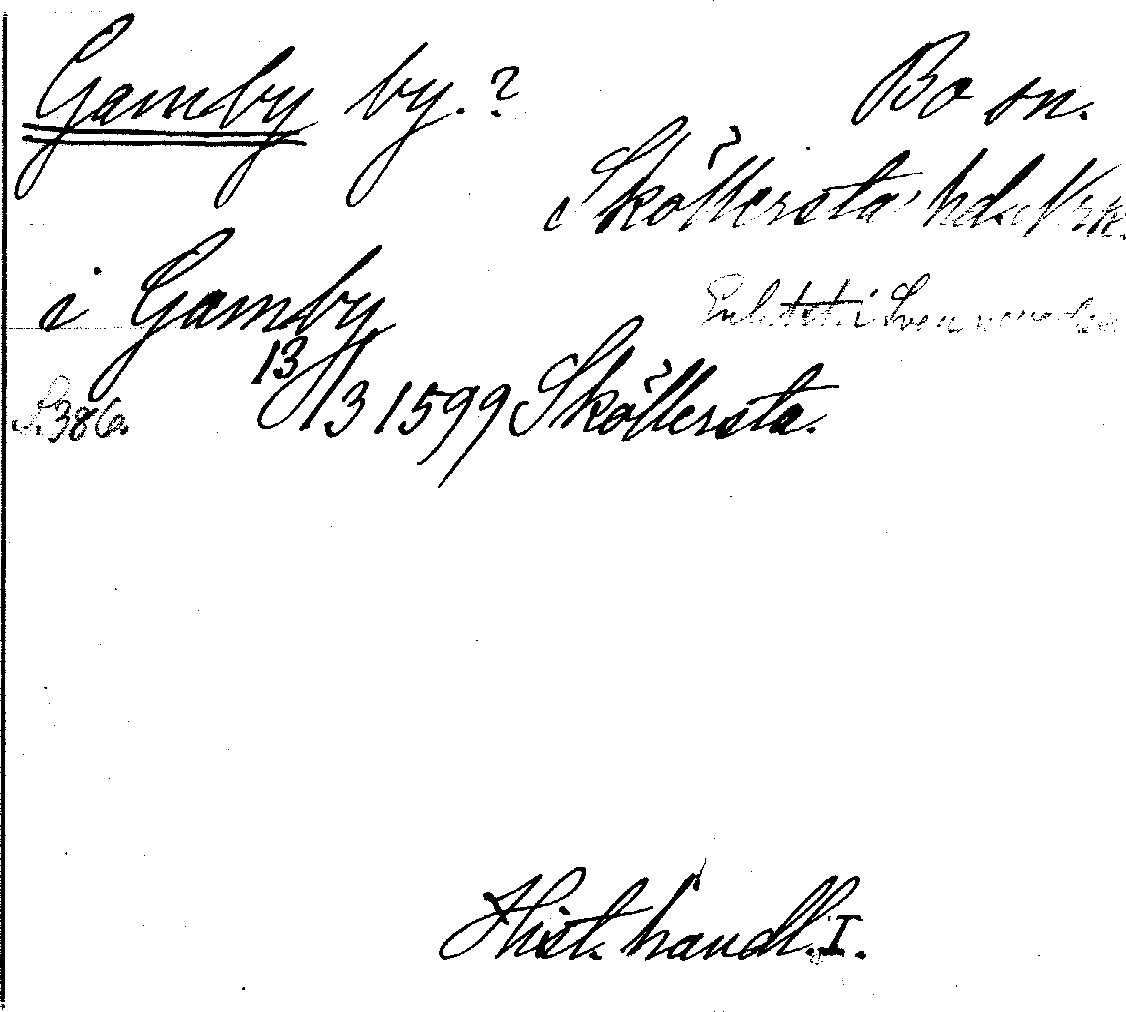 Gamby by.? Bo sn.
Sköllersta hd. Nrk.
i Gamby
S. 386. 13/3 1599 Sköllersta.
Hist. handl. I.